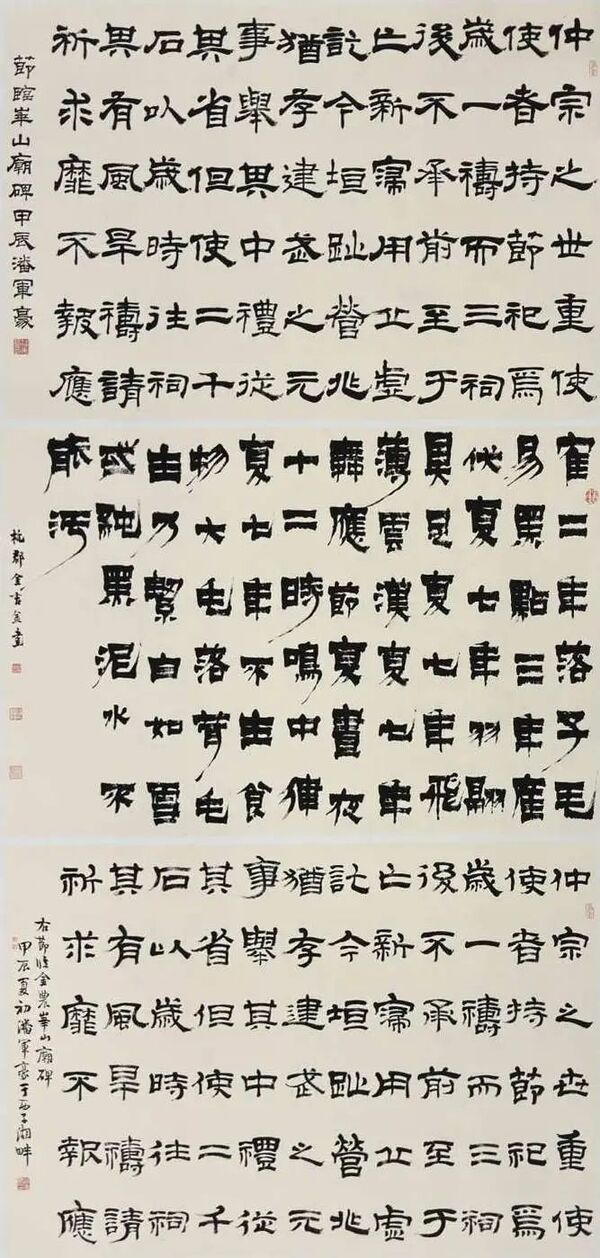 仲宗之世重使
使者持節祀焉
歲一禱而三祠
後不承前至于
亡新寖用丘虛
訖今垣趾營兆
猶存建武之元
事舉其中禮從
其省但使二千
石以歲時往祠
其有風旱禱請
祈求靡不報應
節臨華山廟碑甲辰潘軍豪
寉二年落子毛
易黑點三年產
伏夏七年羽翮
具足夏七年飛
薄雲漢夏七年
舞應節夏晝夜
十二時鳴中律
夏七年不生食
物大毛落茸毛
生乃絜白如雪
或純黑泥水不
能污
杭郡金吉金畫
仲宗之世重使
使者持節祀焉
歲一禱而三祠
後不承前至于
亡新寖用丘虛
訖今垣趾營兆
猶存建武之元
事舉其中禮從
其省但使二千
石以歲時往祠
其有風旱禱請
祈求靡不報應
右節臨金農華山廟碑
甲辰夏初潘軍豪于西子湖畔